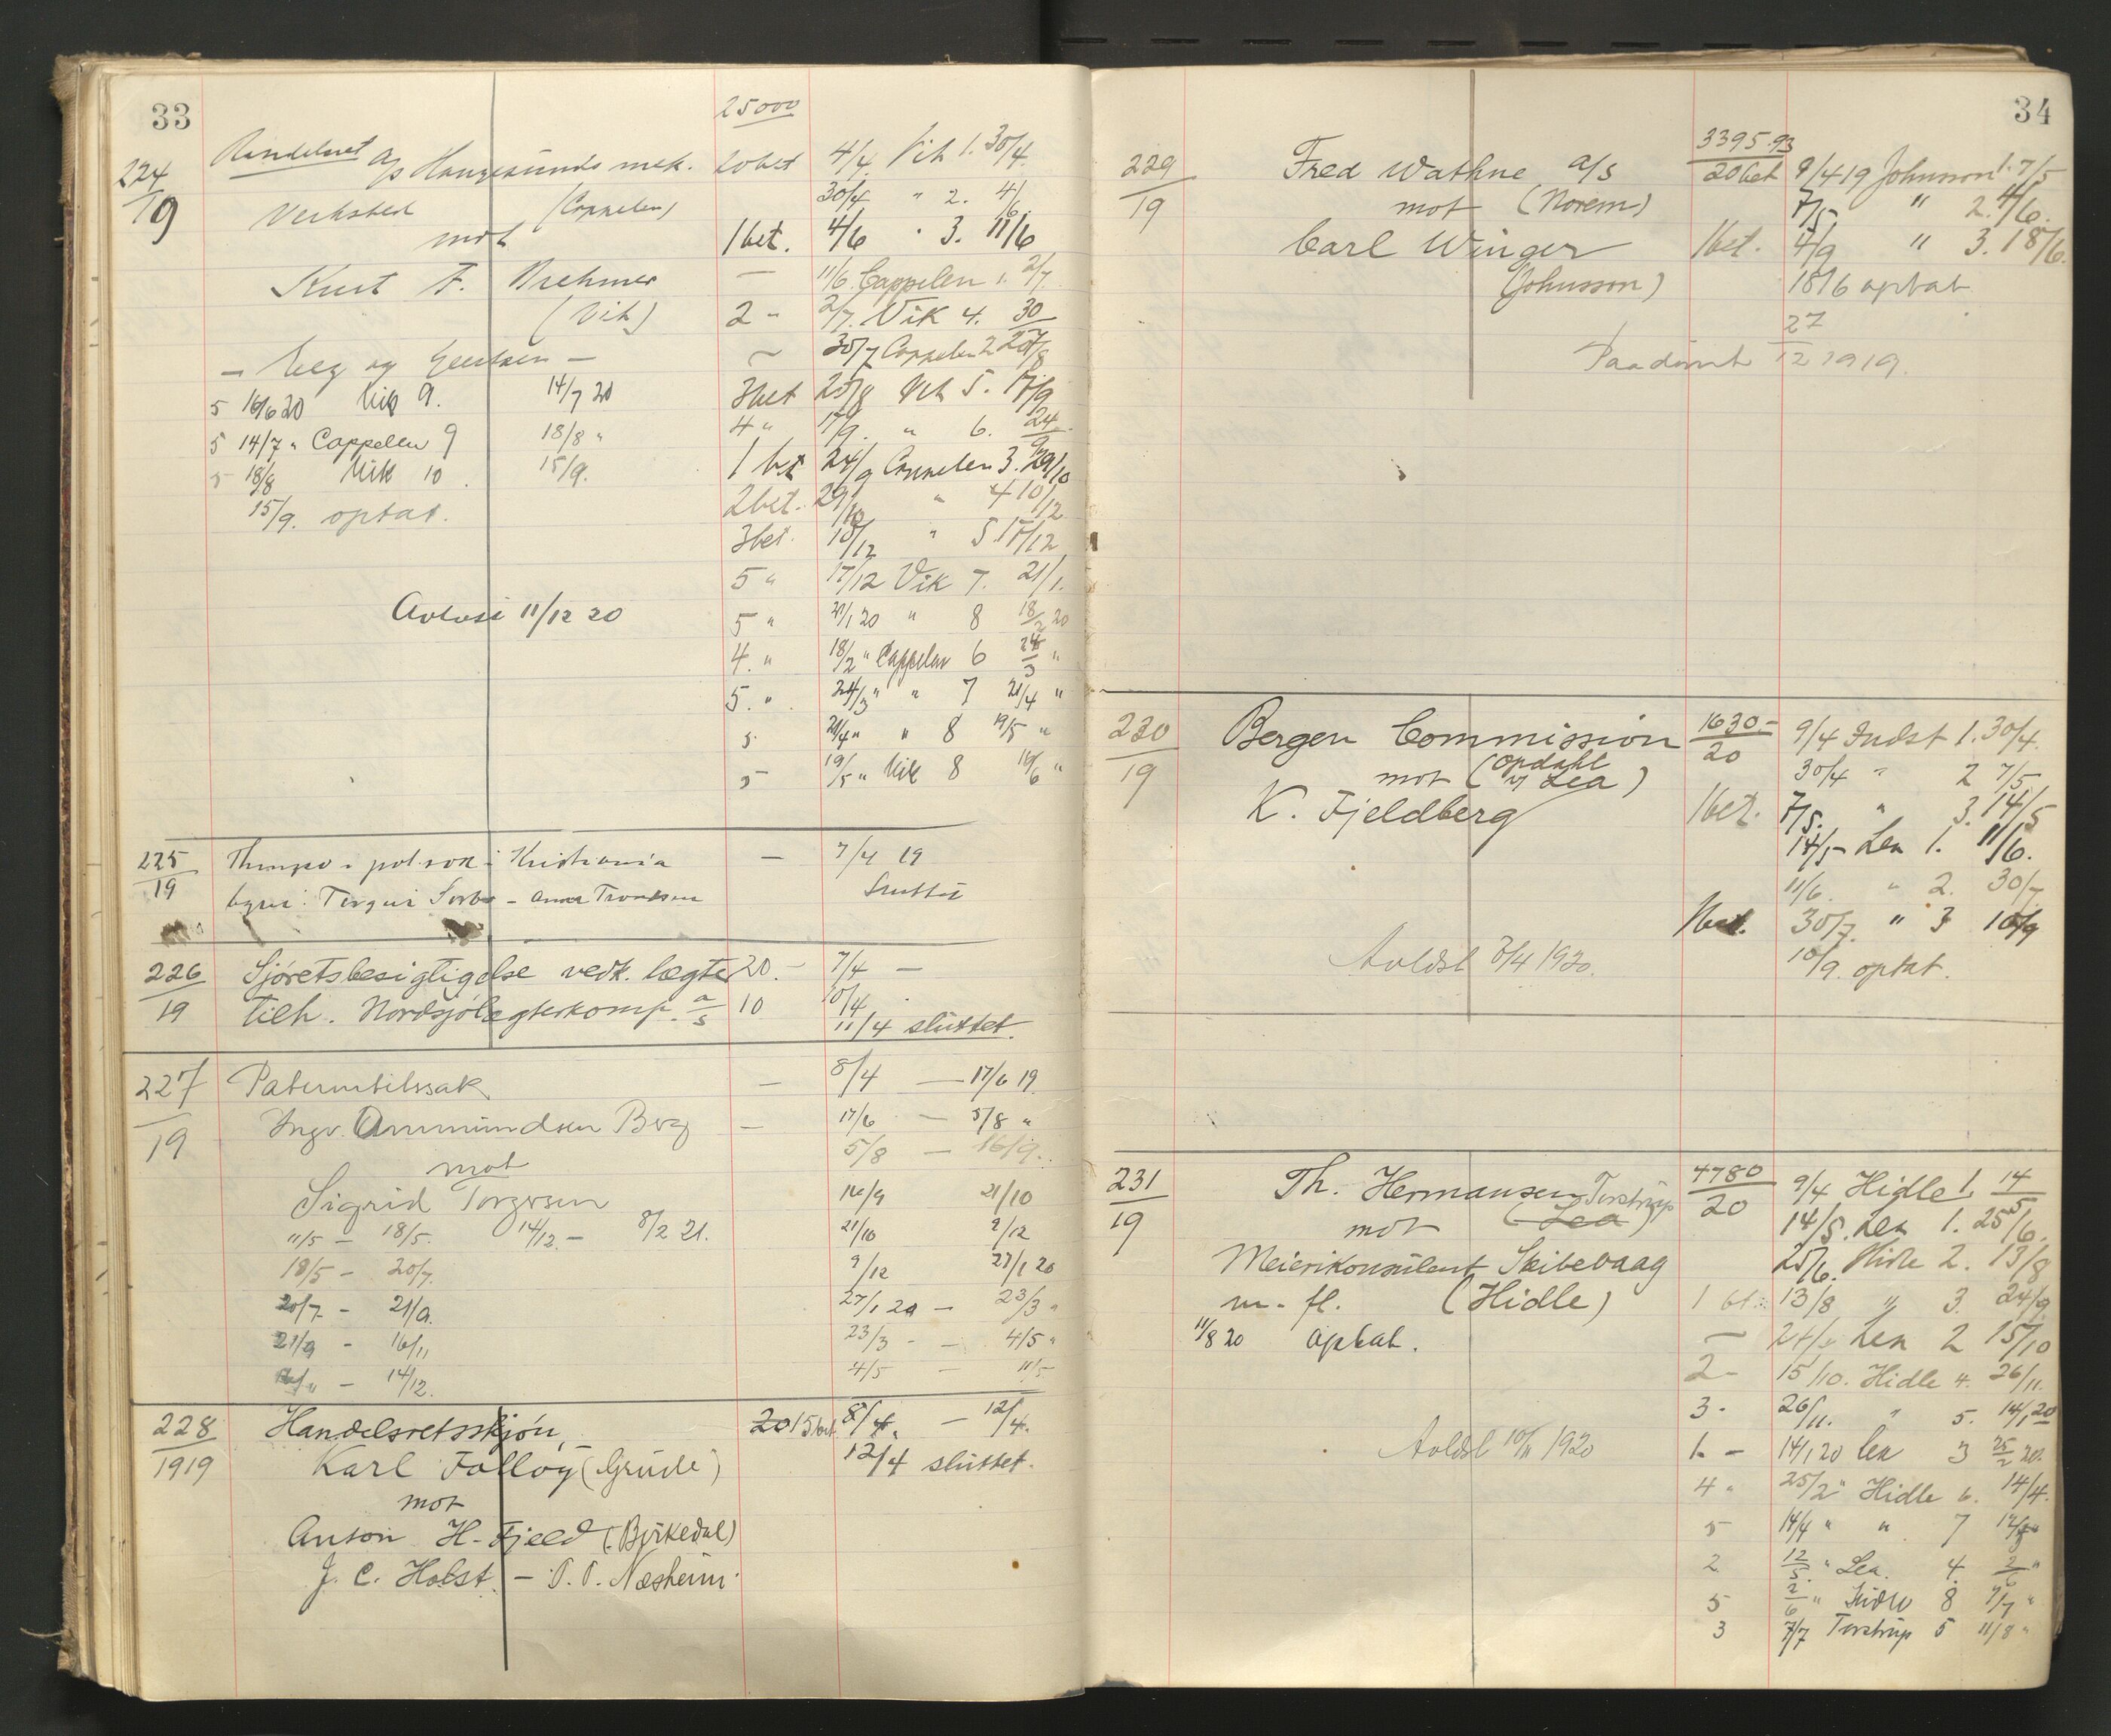 33
25000
224/19 Handelsret A/S Haugesunds mek. 20 bet 4/4 Vik 1. 30/4.
Verksted (Cappelen) 30/4 " 2. 4/6.
mot 1 bet. 4/6 " 3. 11/6
Kurt F. Brehmer — 11/6 Cappelen 1. 2/7.
(Vik) 2 " 2/7. Vik 4. 30
30/7 Cappelen 2
5 16/6 20 Vik 9. 14/7 20 3 bet Vik 5. 17/9
5 14/7 " Cappelen 9 18/8 " 4 " 17/9. " 6. 24/9
5 18/8 Vik 10. 15/9. 1 bet 24/9 Cappelen 3. 29/10
15/9. optat. 2 bet. 29/10 " 4 10/12
3 bet. 10/12 " 5. 17/12
5 " 17/12 Vik 7. 21/1.
Avlæst 11/12 20 5 " 21/1 20 " 8 18/2 20
4. " 18/2 " Cappelen 6 24/3 "
5. " 24/3 " " 7 21/4 "
5 21/4 " " 8 19/5 "
5 19/5 " Vik 8 16/6 "
225/19 pol.sak i Kristiania — 7/4 19
Sluttet
226/19 Sjøretsbesigtigelse vedk. lægter 20.- 7/4 —
tilh. Nordsjølægterkomp. a/s 10 10/4
11/4 sluttet.
227/19 Paternitetssak — 8/4 — 17/6 19.
Ingv. Ammundsen Berg — 17/6 — 5/8 "
mot 5/8 — 16/9.
Sigrid Torgersen 16/9 21/10
11/5 — 18/5. 14/12. — 8/2 21. 21/10 9/12
18/5 — 20/7. 9/12 27/1 20
20/7 — 21/9. 27/1 20 — 23/3 "
21/9 — 16/11 23/3 — 4/5 "
16/11 — 14/12. 4/5 — 11/5
228/1919 Handelsretsskjøn, 20 15 bet 8/4. — 12/4.
Karl Falloy (Grude) 12/4 sluttet.
mot
Anton H. Fjeld (Birkedal)
J. C. Holst. — Næsheim.
34
3395.93
229/19 Fred Wathne a/s 20 bet 9/4 19 Johnsson 1. 7/5
mot (Norem) 7/5 " 2. 4/6.
Carl Winger 1 bet. " 3. 18/6.
(Johnsson) 18/6 optat
Paadømt 27/12 1919.
230/19 Bergen Commission 1630.-/20 9/4 Indst 1. 30/4.
mot (Opdahl v/ Lea) 30/4 " 2 7/5
K. Fjeldberg 1 bet. 7/5. " 3. 14/5
14/5 Lea 1. 11/6.
11/6. " 2. 30/7
1 bet. 30/7. " 3 10/9
Avlæst 1920. 10/9. optat.
231/19 Th. Hermansen Torstrup 4780/20 9/4 Hidle 1. 14/5
mot (Lea) 14/5. Lea 1. 25/6.
Meierikonsulent Skibevaag 25/6. Hidle 2. 13/8
m. fl. (Hidle) 1 bet. 13/8 " 3. 24/9
11/8 20 optat. — 24/9 Lea 2 15/10
2 - 15/10. Hidle 4. 26/11.
3 - 26/11. " 5. 14/1 20
Avlæst 1920 1 - 14/1 20 Lea 3 25/2 20.
4 " 25/2 " Hidle 6. 14/4.
5 14/4 " " 7 12/5 "
2 12/5. " Lea. 4. 2/6 "
5 2/6 " Hidle 8 7/7 "
3 7/7 Torstrup 5 11/8 "